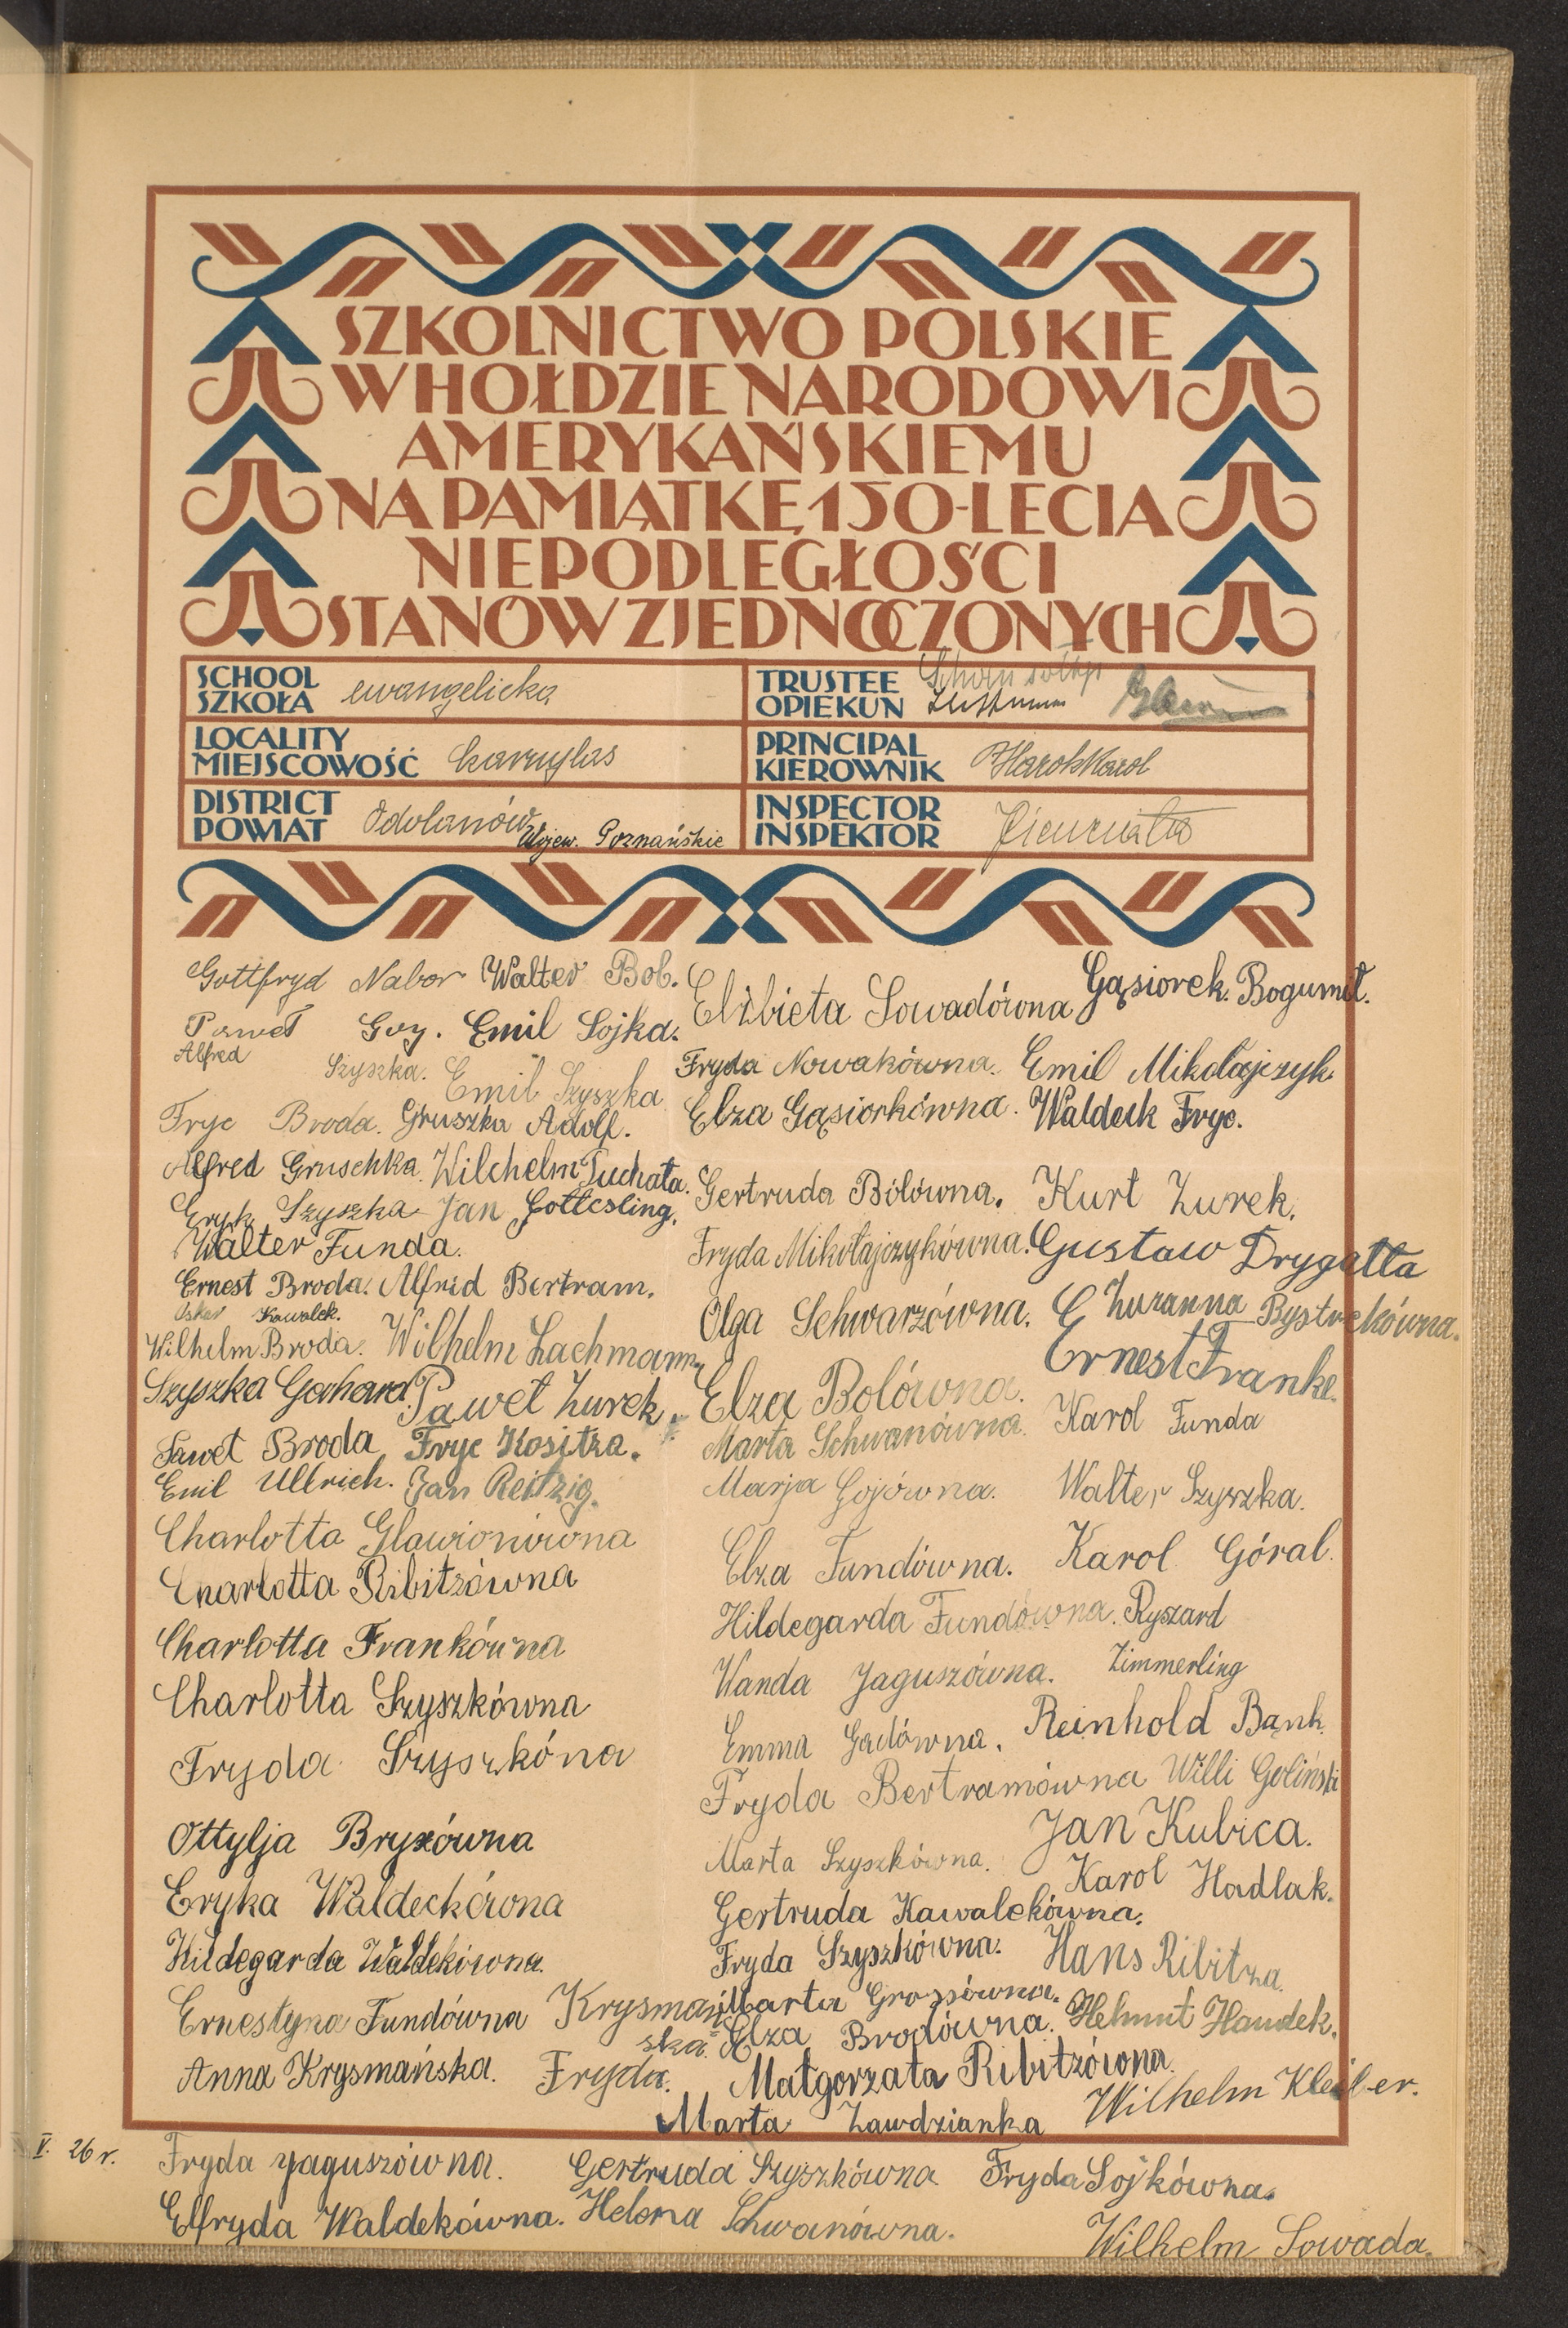 SZKOLNICTWO POLSKIE
W HOŁDZIE NARODOWI
AMERYKAŃSKIEMU
NA PAMIĄTKĘ 150-LECIA
NIEPODLEGŁOŚCI
STANÓW ZJEDNOCZONYCH
SCHOOL
SZKOŁA ewangelicka
LOCALITY
MIEJSCOWOŚĆ
DISTRICT
POWIAT Odolanów Wojew. Poznańskie
TRUSTEE
OPIEKUN
PRINCIPAL
KIEROWNIK Karol
INSPECTOR
INSPEKTOR
Gottfryd Nabor Walter Bob.
Paweł Goy. Emil Sojka.
Alfred Szyszka. Emil Szyszka
Fryc Broda. Gruszka Adolf.
Alfred Gruschka. Wilchelm Puchała.
Eryk Szyszka Jan Gottesling.
Walter Funda.
Ernest Broda. Alfred Bertram.
Oskar Kawalek.
Wilhelm Broda. Wilhelm Lachmann
Szyszka Gerhard. Paweł Żurek.
Paweł Broda Fryc Kositza.
Emil Ullrich. Jan Reitzig.
Charlotta Glawionówna
Charlotta Ribitzówna
Charlotta Frankówna
Charlotta Szyszkówna
Fryda Szyszkóna
Ottylja Bryzówna
Eryka Waldeckówna
Hildegarda Waldekówna
Ernestyna Fundówna Krysmań
ska.
Anna Krysmańska. Fryda.
Elżbieta Sowadówna Gąsiorek. Bogumił.
Fryda Nowakówna. Emil Mikołajczyk.
Elza Gąsiorkówna. Waldeck Fryc.
Gertruda Bólówna. Kurt Żurek.
Fryda Mikołajczykówna. Gustaw Drygalla
Olga Schwarzówna. Zuzanna Bystrekówna.
Ernest Franke.
Elza Bolówna.
Marta Schwanówna. Karol Funda
Marja Gojówna. Walter Szyszka.
Elza Fundówna. Karol Góral.
Hildegarda Fundówna. Ryszard
Wanda Jaguszówna. Zimmerling
Emma Gadówna. Reinhold Bank.
Fryda Bertramówna Willi Goliński
Jan Kubica.
Marta Szyszkówna. Karol Hadlak.
Gertruda Kawalekówna.
Fryda Szyszkówna. Hans Ribitza
Marta Grossówna. Helmut Handek.
Elza Brodówna.
Małgorzata Ribitzówna.
Wilhelm Kleiber.
Marta Zawdzianka
V. 26 r. Fryda Jaguszówna. Gertruda Szyszkówna Fryda Sojkówna.
Elfryda Waldekówna. Helena Schwanówna.
Wilhelm Sowada.